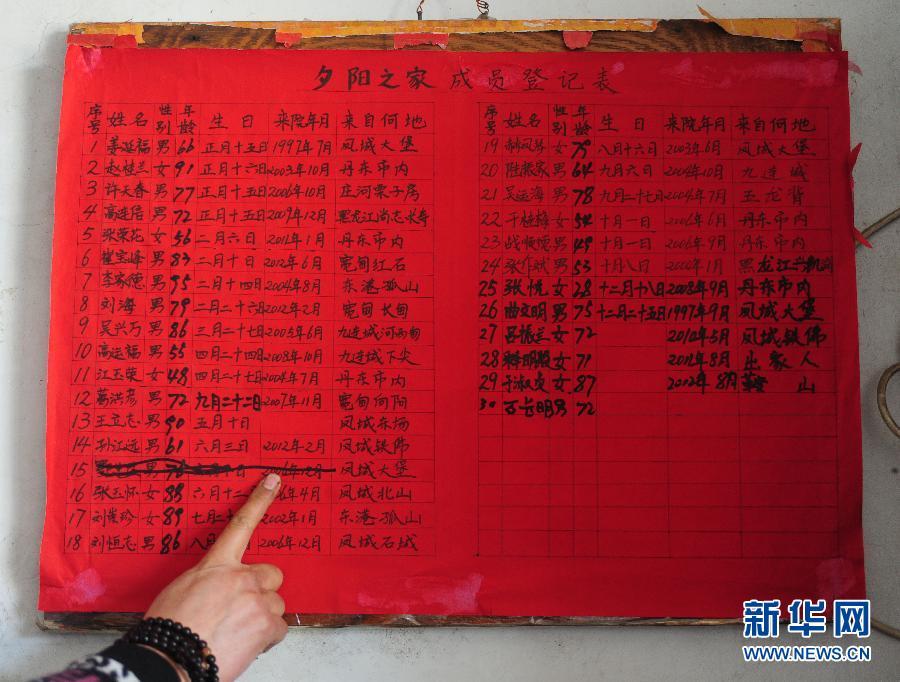 夕阳之家成员登记表
序号 姓名 性别 年龄 生日 来院年月 来自何地
1 姜延福 男 66 正月十五日 1997年7月 凤城大堡
2 赵桂兰 女 91 正月十六日 2003年10月 丹东市内
3 许天春 男 77 正月十五日 2006年10月 庄河栗子房
4 高连居 男 72 正月十五日 2009年12月 黑龙江尚志长寿
5 张荣花 女 56 二月六日 2011年1月 丹东市内
6 崔宝峰 男 83 二月十日 2012年6月 宽甸红石
7 李家德 男 95 二月十四日 2004年8月 东港孤山
8 刘海 男 79 二月二十六日 2012年2月 宽甸长甸
9 吴兴万 男 86 三月二十七日 2005年6月 九连城河西甸
10 高运福 男 55 四月二十四日 2008年10月 九连城下尖
11 江玉荣 女 48 四月二十七日 2004年7月 丹东市内
12 葛洪彦 男 72 九月二十二日 2007年11月 宽甸向阳
13 王立志 男 90 五月十日 凤城东汤
14 孙江远 男 61 六月三日 2012年2月 凤城铁佛
15 男 2006年12月 凤城大堡
16 张玉怀 女 88 六月十二 年4月 凤城北山
17 刘崇珍 女 89 七月二 2002年1月 东港孤山
18 刘恒志 男 86 八月 2006年12月 凤城石城
序号 姓名 性别 年龄 生日 来院年月 来自何地
19 郝凤琴 女 79 八月十六日 2003年6月 凤城大堡
20 家 男 64 九月六日 2004年10月 九连城
21 吴运海 男 78 九月二十七日 2004年7月 五龙背
22 于桂梅 女 54 十月一日 2006年6月 丹东市内
23 战顺德 男 49 十月一日 2006年9月 丹东市内
24 张作斌 男 53 十月八日 2000年1月 黑龙江
25 张悦 女 28 十二月十八日 2008年9月 丹东市内
26 曲文明 男 75 十二月二十五日 1997年9月 凤城大堡
27 吕振兰 女 72 2012年5月 凤城铁佛
28 释明 女 71 2012年8月 出家人
29 于淑贞 女 87 2012年8月 山
30 万长明 男 72
新华网
WWW.NEWS.CN